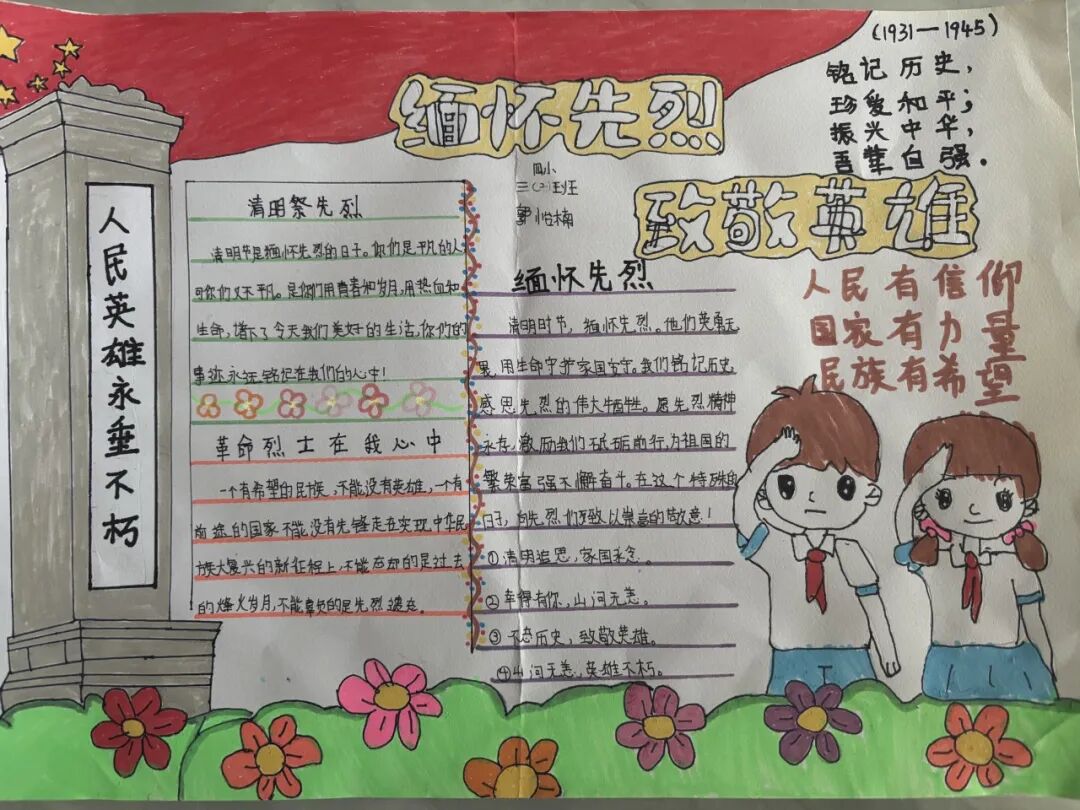 (1931—1945)
铭记历史，
珍爱和平；
振兴中华，
吾辈自强．
缅怀先烈
致敬英雄
四小
三(二)班
郭怡楠
人民英雄永垂不朽
清明祭先烈
清明节是缅怀先烈的日子。你们是平凡的人
可你们又不平凡。是你们用青春和岁月，用热血和
生命，搭下了今天我们美好的生活，你们的
事迹永远铭记在我们的心中！
革命烈士在我心中
一个有希望的民族，不能没有英雄，一个有
前途的国家不能没有先锋走在实现中华民
族大复兴的新征程上，不能忘却的是过去
的烽火岁月，不能辜负的是先烈遗志。
缅怀先烈
清明时节，缅怀先烈。他们英勇无
畏，用生命守护家国安宁。我们铭记历史，
感恩先烈的伟大牺牲。愿先烈精神
永存，激励我们砥砺前行，为祖国的
繁荣富强不懈奋斗。在这个特殊的
日子，向先烈们致以崇高的敬意！
①清明追思，家国永念。
②幸得有你，山河无恙。
③不忘历史，致敬英雄。
④山河无恙，英雄不朽。
人民有信仰
国家有力量
民族有希望